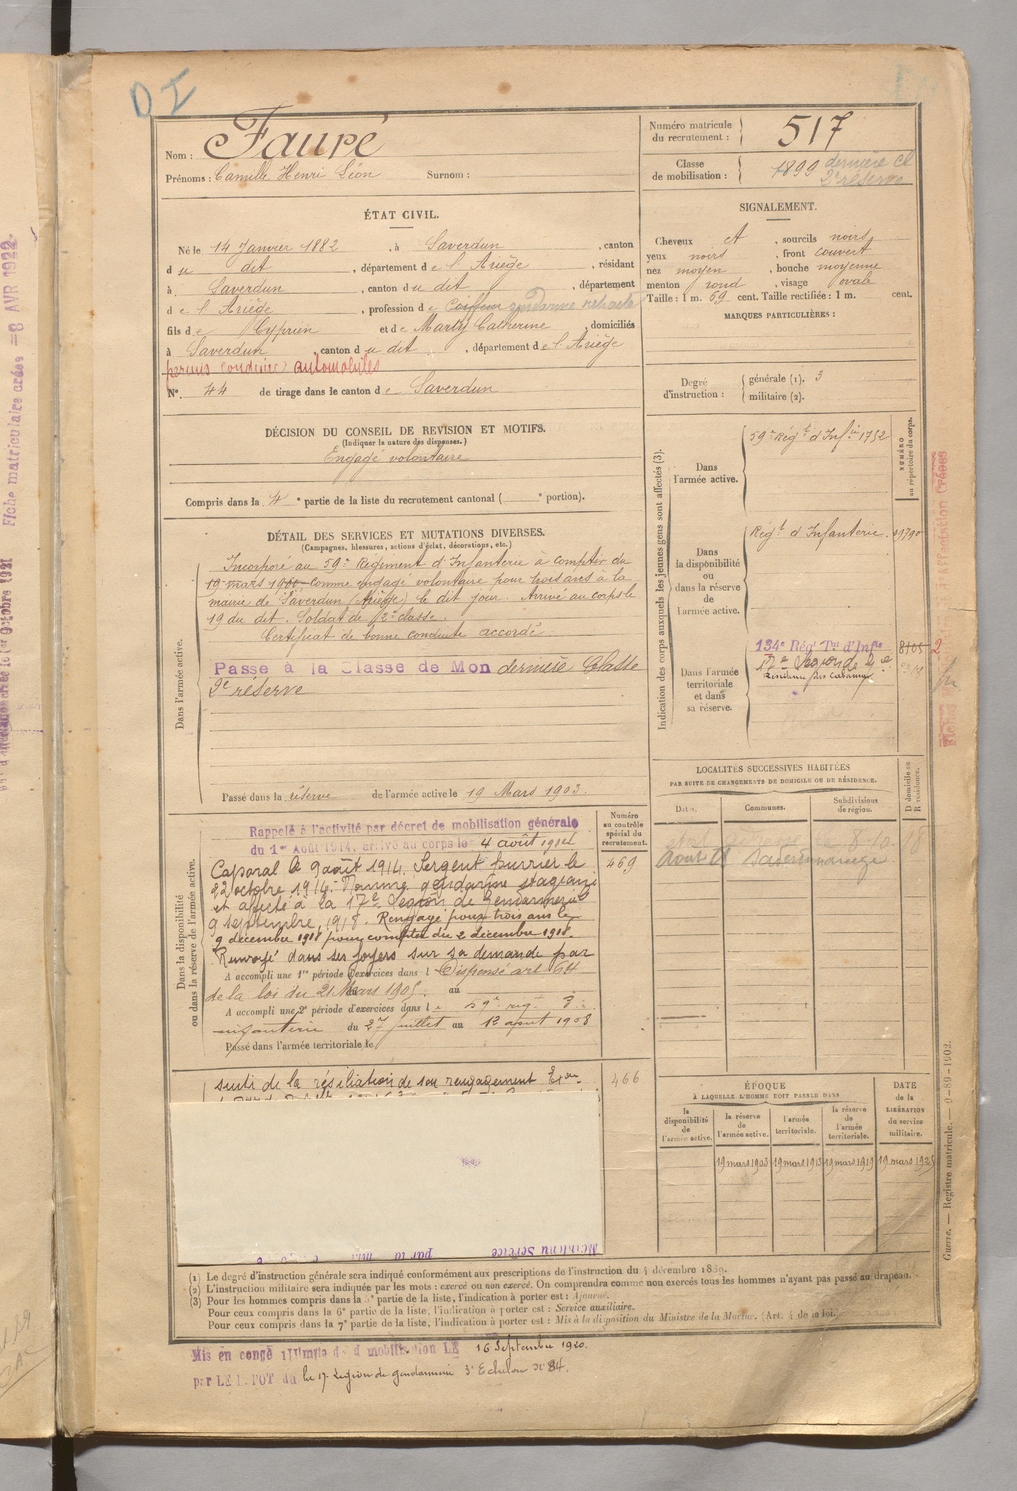 DI
Nom : Fauré
Prénoms : Camille Henri Léon Surnom :
Numéro matricule du recrutement : 517
Classe de mobilisation : 1899 dernière Cl
2e réserve
ÉTAT CIVIL.
Né le 14 Janvier 1882, à Saverdun, canton
du dit, département de l'Ariège, résidant
à Saverdun, canton du dit, département
de l'Ariège, profession de Coiffeur gendarme retraité
fils de Cyprien et de Marty Catherine, domiciliés
à Saverdun, canton du dit, département de l'Ariège
permis conduire automobiles
N° 44 de tirage dans le canton de Saverdun
SIGNALEMENT.
Cheveux et, sourcils noirs
yeux noirs, front couvert
nez moyen, bouche moyenne
menton rond, visage ovale
Taille : 1 m. 69 cent. Taille rectifiée : 1 m. cent.
MARQUES PARTICULIÈRES :
Degré d'instruction : générale (1). 3
militaire (2).
DÉCISION DU CONSEIL DE REVISION ET MOTIFS.
(Indiquer la nature des dispenses.)
Engagé volontaire
Compris dans la 4e partie de la liste du recrutement cantonal ( e portion).
DÉTAIL DES SERVICES ET MUTATIONS DIVERSES.
(Campagnes, blessures, actions d'éclat, décorations, etc.)
Dans l'armée active.
Incorporé au 59e Régiment d'Infanterie à compter du
19 mars 1900 comme engagé volontaire pour trois ans à la
mairie de Saverdun (Ariège) le dit jour. Arrivé au corps le
19 du dit. Soldat de 2e classe.
Certificat de bonne conduite accordé.
Passé à la Classe de Mon dernière Classe
2e réserve
Passé dans la réserve de l'armée active le 19 Mars 1903.
Indication des corps auxquels les jeunes gens sont affectés (3).
NUMÉRO au répertoire du corps.
Dans l'armée active. 59e Régt d'Infie 1752
Dans la disponibilité ou dans la réserve de l'armée active. Régt d'Infanterie.
Dans l'armée territoriale et dans sa réserve. 134e Régt Tal d'Infie 8105
17e Légion de Gie
Résidence
LOCALITÉS SUCCESSIVES HABITÉES
PAR SUITE DE CHANGEMENTS DE DOMICILE OU DE RÉSIDENCE.
Dates. Communes. Subdivisions de région. D domicile ou R résidence.
Dans la disponibilité ou dans la réserve de l'armée active.
Numéro au contrôle spécial du recrutement.
Rappelé à l'activité par décret de mobilisation générale
du 1er Août 1914, arrivé au corps le 4 août 1914
469
Caporal le 9 août 1914. Sergent fourrier le
22 octobre 1914. Nommé gendarme stagiaire
et affecté à la 17e Légion de Gendarmerie
9 septembre 1918. Rengagé pour trois ans le
9 décembre 1918 pour compter du 2 décembre 1918.
Renvoyé dans ses foyers sur sa demande par
A accompli une 1re période d'exercices dans l Dispensé art 64
de la loi du 21 Mars 1905. au
A accompli une 2e période d'exercices dans le 59e rég.
infanterie du 27 juillet au 12 août 1908
Passé dans l'armée territoriale le
suite de la résiliation de son rengagement
466
ÉPOQUE
À LAQUELLE L'HOMME DOIT PASSER DANS
la disponibilité de l'armée active.
la réserve de l'armée active.
l'armée territoriale.
la réserve de l'armée territoriale.
DATE de la LIBÉRATION du service militaire.
19 mars 1903 19 mars 1913 19 mars 1919 19 mars 1925
(1) Le degré d'instruction générale sera indiqué conformément aux prescriptions de l'instruction du 4 décembre 1889.
(2) L'instruction militaire sera indiquée par les mots : exercé ou non exercé. On comprendra comme non exercés tous les hommes n'ayant pas passé au drapeau.
(3) Pour les hommes compris dans la 5e partie de la liste, l'indication à porter est : Ajourné.
Pour ceux compris dans la 6e partie de la liste, l'indication à porter est : Service auxiliaire.
Pour ceux compris dans la 7e partie de la liste, l'indication à porter est : Mis à la disposition du Ministre de la Marine. (Art. 4 de la loi.)
Mis en congé illimité de démobilisation LE 16 Septembre 1920.
par LE DÉPOT du la 17e Légion de gendarmerie 3e Echelon N° 84.
Guerre. — Registre matricule. — 9-89-1902.
Fiche matriculaire créée = 8 AVR 1922